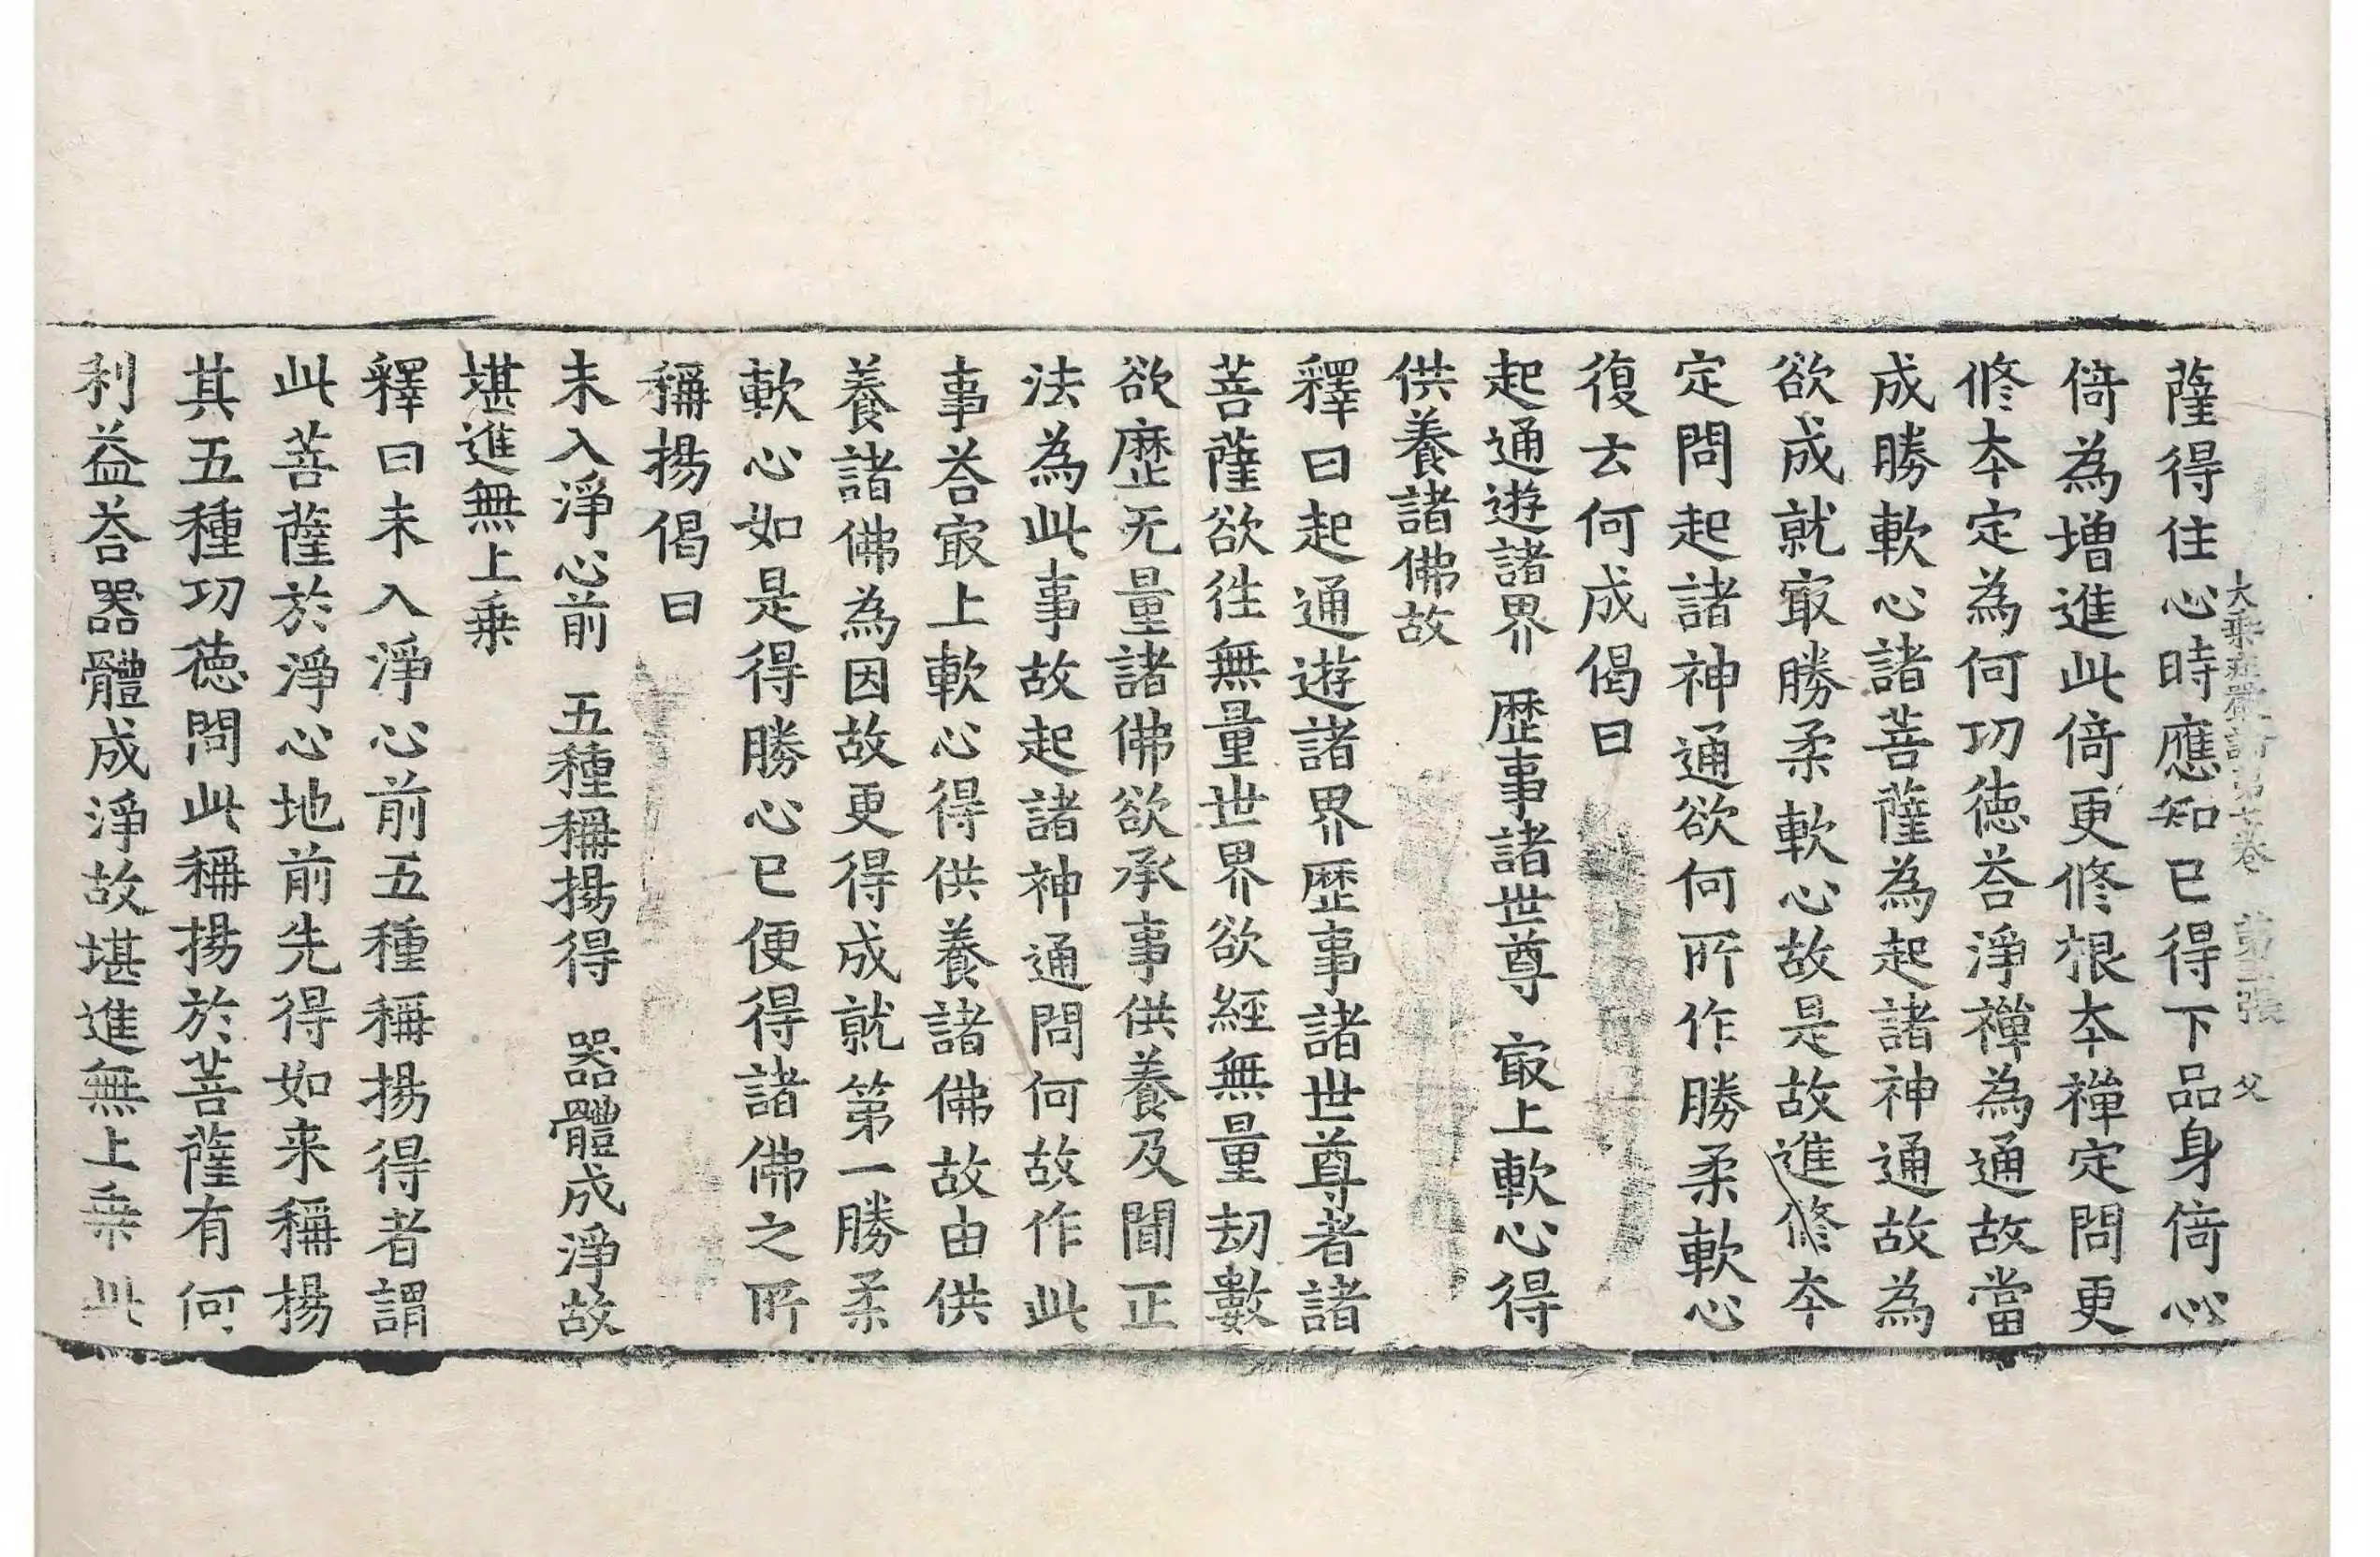 薩得住心時應知已得下品身倚心
大乗莊嚴論第七卷 第三張 父
倚為增進此倚更修根本禪定問更
修本定為何功徳荅淨禪為通故當
成勝軟心諸菩薩為起諸神通故為
欲成就㝡勝柔軟心故是故進修本
定問起諸神通欲何所作勝柔軟心
復云何成偈曰
起通遊諸界 歷事諸世尊 㝡上軟心得
供養諸佛故
釋曰起通遊諸界歷事諸世尊者諸
菩薩欲往無量世界欲經無量劫數
欲歷无量諸佛欲承事供養及聞正
法為此事故起諸神通問何故作此
事荅㝡上軟心得供養諸佛故由供
養諸佛為因故更得成就第一勝柔
軟心如是得勝心已便得諸佛之所
稱揚偈曰
未入淨心前 五種稱揚得 器體成淨故
堪進無上乗
釋曰未入淨心前五種稱揚得者謂
此菩薩於淨心地前先得如来稱揚
其五種功徳問此稱揚於菩薩有何
利益荅器體成淨故堪進無上乗此